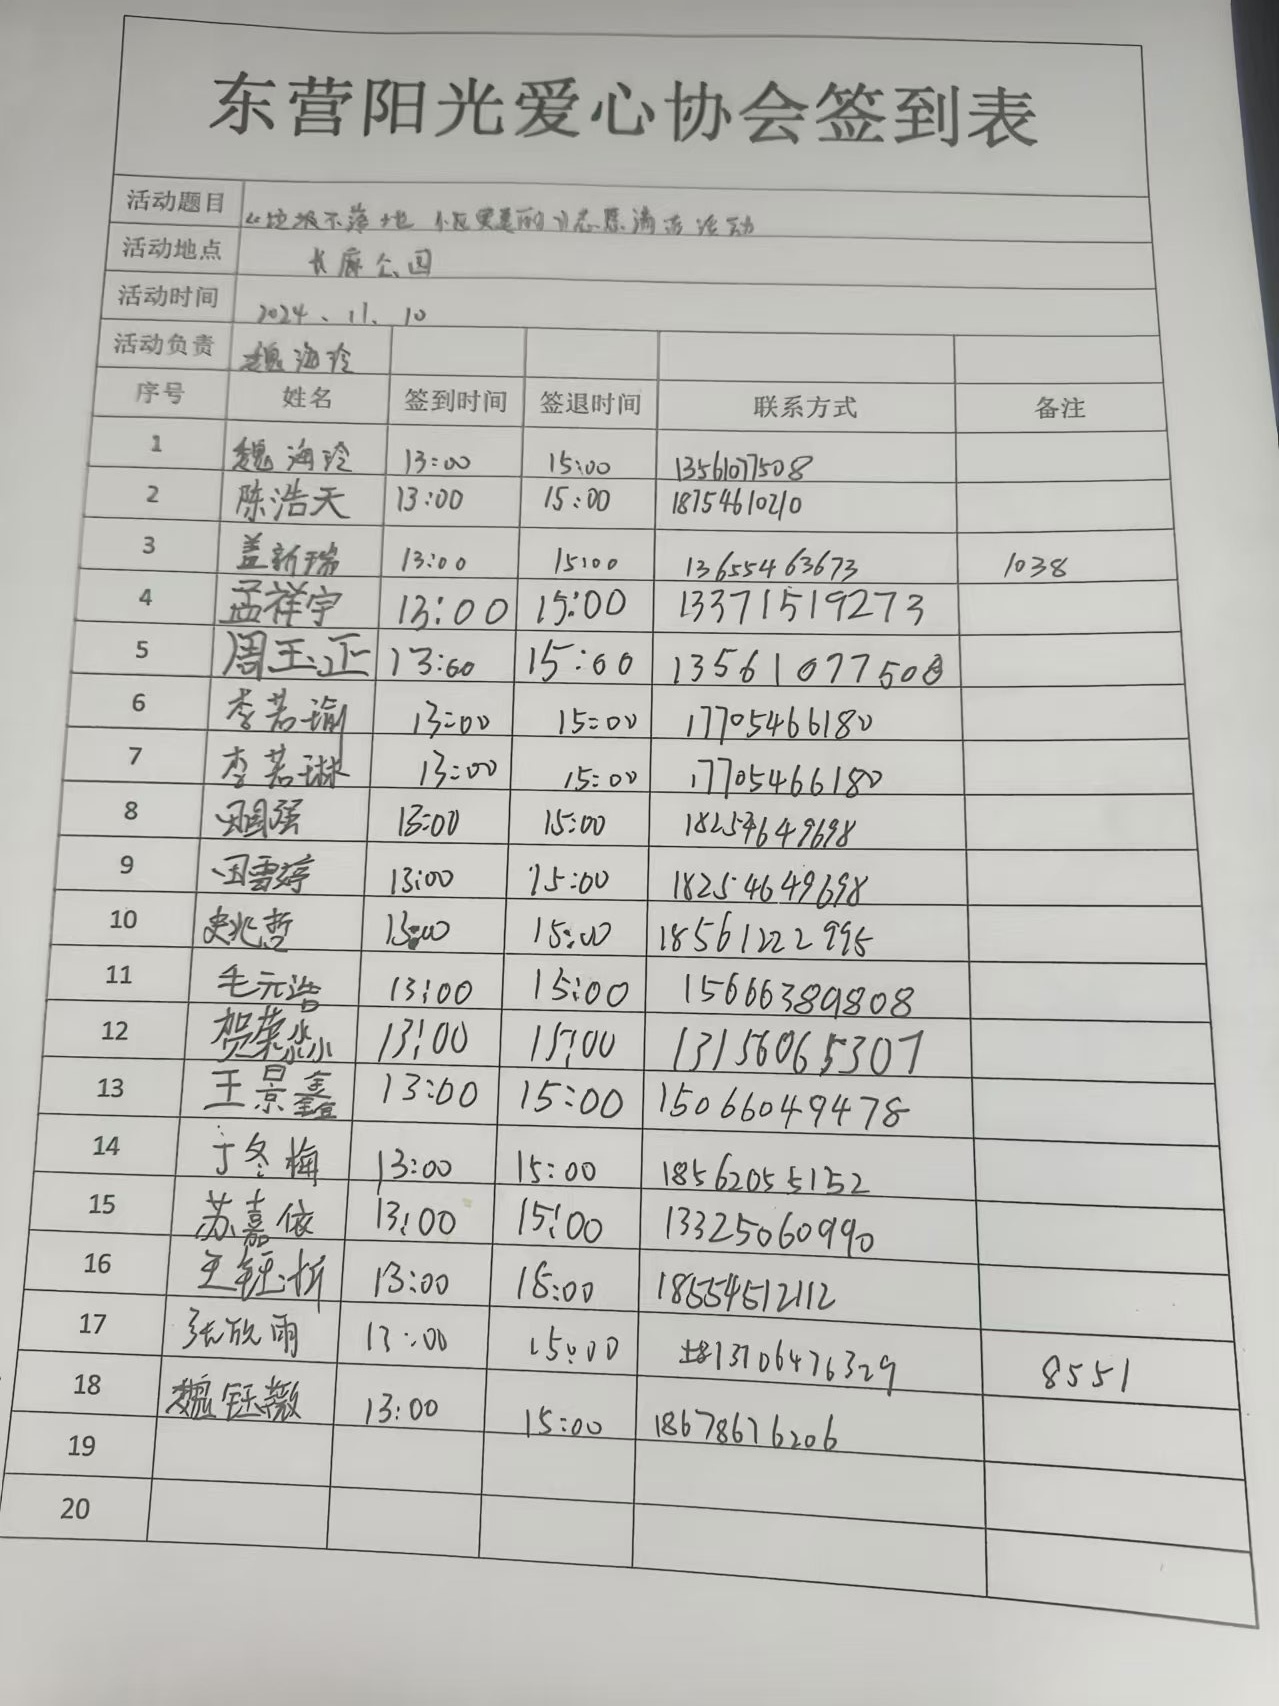 东营阳光爱心协会签到表
活动题目 《垃圾不落地 小区更美丽》志愿清洁活动
活动地点 长廊公园
活动时间 2024、11、10
活动负责 魏海玲
序号 姓名 签到时间 签退时间 联系方式 备注
1 魏海玲 13:00 15:00 13561077508
2 陈浩天 13:00 15:00 18754610210
3 盖新瑞 13:00 15:00 13655463673 1038
4 孟祥宇 13:00 15:00 13371519273
5 周玉正 13:00 15:00 13561077508
6 李若瑜 13:00 15:00 17705466180
7 李若琳 13:00 15:00 17705466180
8 田国强 13:00 15:00 18254649698
9 田雪婷 13:00 15:00 18254649698
10 史兆哲 13:00 15:00 18561222995
11 毛元浩 13:00 15:00 15666389808
12 贺荣淼 13:00 15:00 13156065307
13 王景鑫 13:00 15:00 15066049478
14 于冬梅 13:00 15:00 18562055152
15 苏嘉依 13:00 15:00 13325060990
16 13:00 15:00 18554512112
17 张欣雨 13:00 15:00 13706476329 8551
18 魏钰薇 13:00 15:00 18678676206
19
20